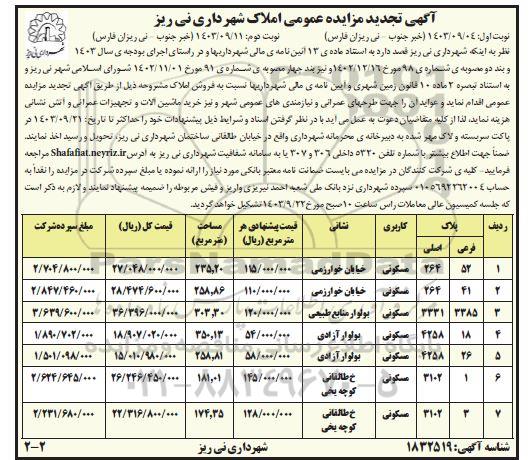 آگهی تجدید مزایده عمومی املاک شهرداری نی ریز
نوبت اول: ۱۴۰۳/۰۹/۰۴ (خبر جنوب - نی ریزان فارس) نوبت دوم: ۱۴۰۳/۰۹/۱۱ (خبر جنوب - نی ریزان فارس)
نظر به اینکه شهرداری نی ریز قصد دارد به استناد ماده ی ۱۳ آئین نامه ی مالی شهرداریها و در راستای اجرای بودجه ی سال ۱۴۰۳
و بند دو مصوبه ی شماره ی ۹۸ مورخ ۱۴۰۲/۱۲/۱۶ و نیز بند چهار مصوبه ی شماره ی ۹۱ مورخ ۱۴۰۲/۱۱/۰۱ شورای اسلامی شهر نی ریز و
به استناد تبصره ۲ ماده ۱۰ قانون زمین شهری و آیین نامه ی مالی شهرداریها نسبت به فروش املاک مشروحه ذیل از طریق آگهی تجدید مزایده
عمومی اقدام نماید و عواید آن را جهت طرحهای عمرانی و نیازمندی های عمومی شهر و نیز خرید ماشین آلات و تجهیزات عمرانی و آتش نشانی
هزینه نماید، لذا از کلیه متقاضیان دعوت به عمل می آید با در نظر گرفتن اسناد و شرایط ذیل پیشنهادات خود را حداکثر تا تاریخ: ۱۴۰۳/۰۹/۲۱ در
پاکت سربسته و لاک مهر شده به دبیرخانه ی محرمانه شهرداری واقع در خیابان طالقانی ساختمان شهرداری نی ریز، تحویل و رسید اخذ نمایند.
ضمناً جهت اطلاع بیشتر با شماره تلفن ۵۳۲۰ داخلی ۳۰۶ و ۳۰۷ یا به سامانه شفافیت شهرداری نی ریز به آدرس Shafafiat.neyriz.ir مراجعه
فرمایید. کلیه ی شرکت کنندگان در مزایده می بایست ضمانت نامه معتبر بانکی مورد نیاز را ارائه نموده یا مبلغ سپرده شرکت در مزایده را نقداً به
حساب ۰۱۰۵۶۹۲۲۶۲۰۰۴ سپرده شهرداری نزد بانک ملی شعبه احمد نیریزی واریز و فیش مربوطه را ضمیمه پیشنهاد نمایند و لازم به ذکر است
که جلسه کمیسیون عالی معاملات راس ساعت ۱۰ صبح مورخ ۱۴۰۳/۰۹/۲۲ تشکیل خواهد گردید.
ردیف پلاک فرعی اصلی کاربری نشانی قیمت پیشنهادی هر متر مربع (ریال) مساحت (متر مربع) قیمت کل (ریال) مبلغ سپرده شرکت
۱ ۵۲ ۲۶۴ مسکونی خیابان خوارزمی ۱۱۵/۰۰۰/۰۰۰ ۲۳۵,۲۰ ۲۷/۰۴۸/۰۰۰/۰۰۰ ۲/۷۰۴/۸۰۰/۰۰۰
۲ ۴۱ ۲۶۴ مسکونی خیابان خوارزمی ۱۱۰/۰۰۰/۰۰۰ ۲۵۸,۸۶ ۲۸/۴۷۴/۶۰۰/۰۰۰ ۲/۸۴۷/۴۶۰/۰۰۰
۳ ۳۳۸۵ ۳۳۳۱ مسکونی بولوار منابع طبیعی ۱۲۰/۰۰۰/۰۰۰ ۳۰۳,۳۰ ۳۶/۳۹۶/۰۰۰/۰۰۰ ۳/۶۳۹/۶۰۰/۰۰۰
۴ ۱۸ ۴۲۵۸ مسکونی بولوار آزادی ۵۴/۰۰۰/۰۰۰ ۳۵۰,۱۳ ۱۸/۹۰۷/۰۲۰/۰۰۰ ۱/۸۹۰/۷۰۲/۰۰۰
۵ ۲۶ ۴۲۵۸ مسکونی بولوار آزادی ۵۸/۰۰۰/۰۰۰ ۲۵۸,۸۱ ۱۵/۰۱۰/۹۸۰/۰۰۰ ۱/۵۰۱/۰۹۸/۰۰۰
۶ ۱ ۳۱۰۲ مسکونی خ طالقانی کوچه یخی ۱۴۵/۰۰۰/۰۰۰ ۱۸۱,۰۱ ۲۶/۲۴۶/۴۵۰/۰۰۰ ۲/۶۲۴/۶۴۵/۰۰۰
۷ ۳ ۳۱۰۲ مسکونی خ طالقانی کوچه یخی ۱۲۸/۰۰۰/۰۰۰ ۱۷۴,۳۵ ۲۲/۳۱۶/۸۰۰/۰۰۰ ۲/۲۳۱/۶۸۰/۰۰۰
شناسه آگهی: ۱۸۳۲۵۱۹ شهرداری نی ریز ۲-۲